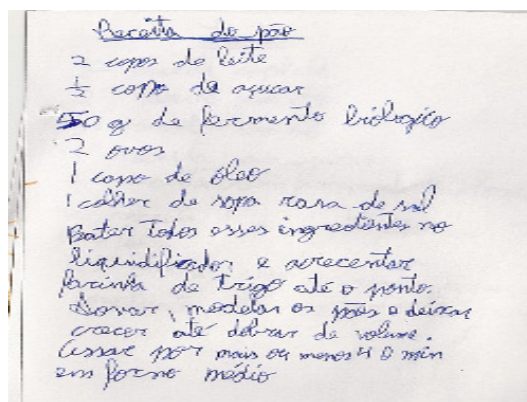 Receita de pão
2 copos de leite
½ copo de açucar
50 g de fermento biologico
2 ovos
1 copo de óleo
1 colher de sopa rasa de sal
Bater Todos esses ingredientes no
liquidificador e acrecentar
farinha de trigo até o ponto.
Sovar, modelar os pães e deixar
crecer até dobrar de volume.
Assar por mais ou menos 40 min
em forno médio